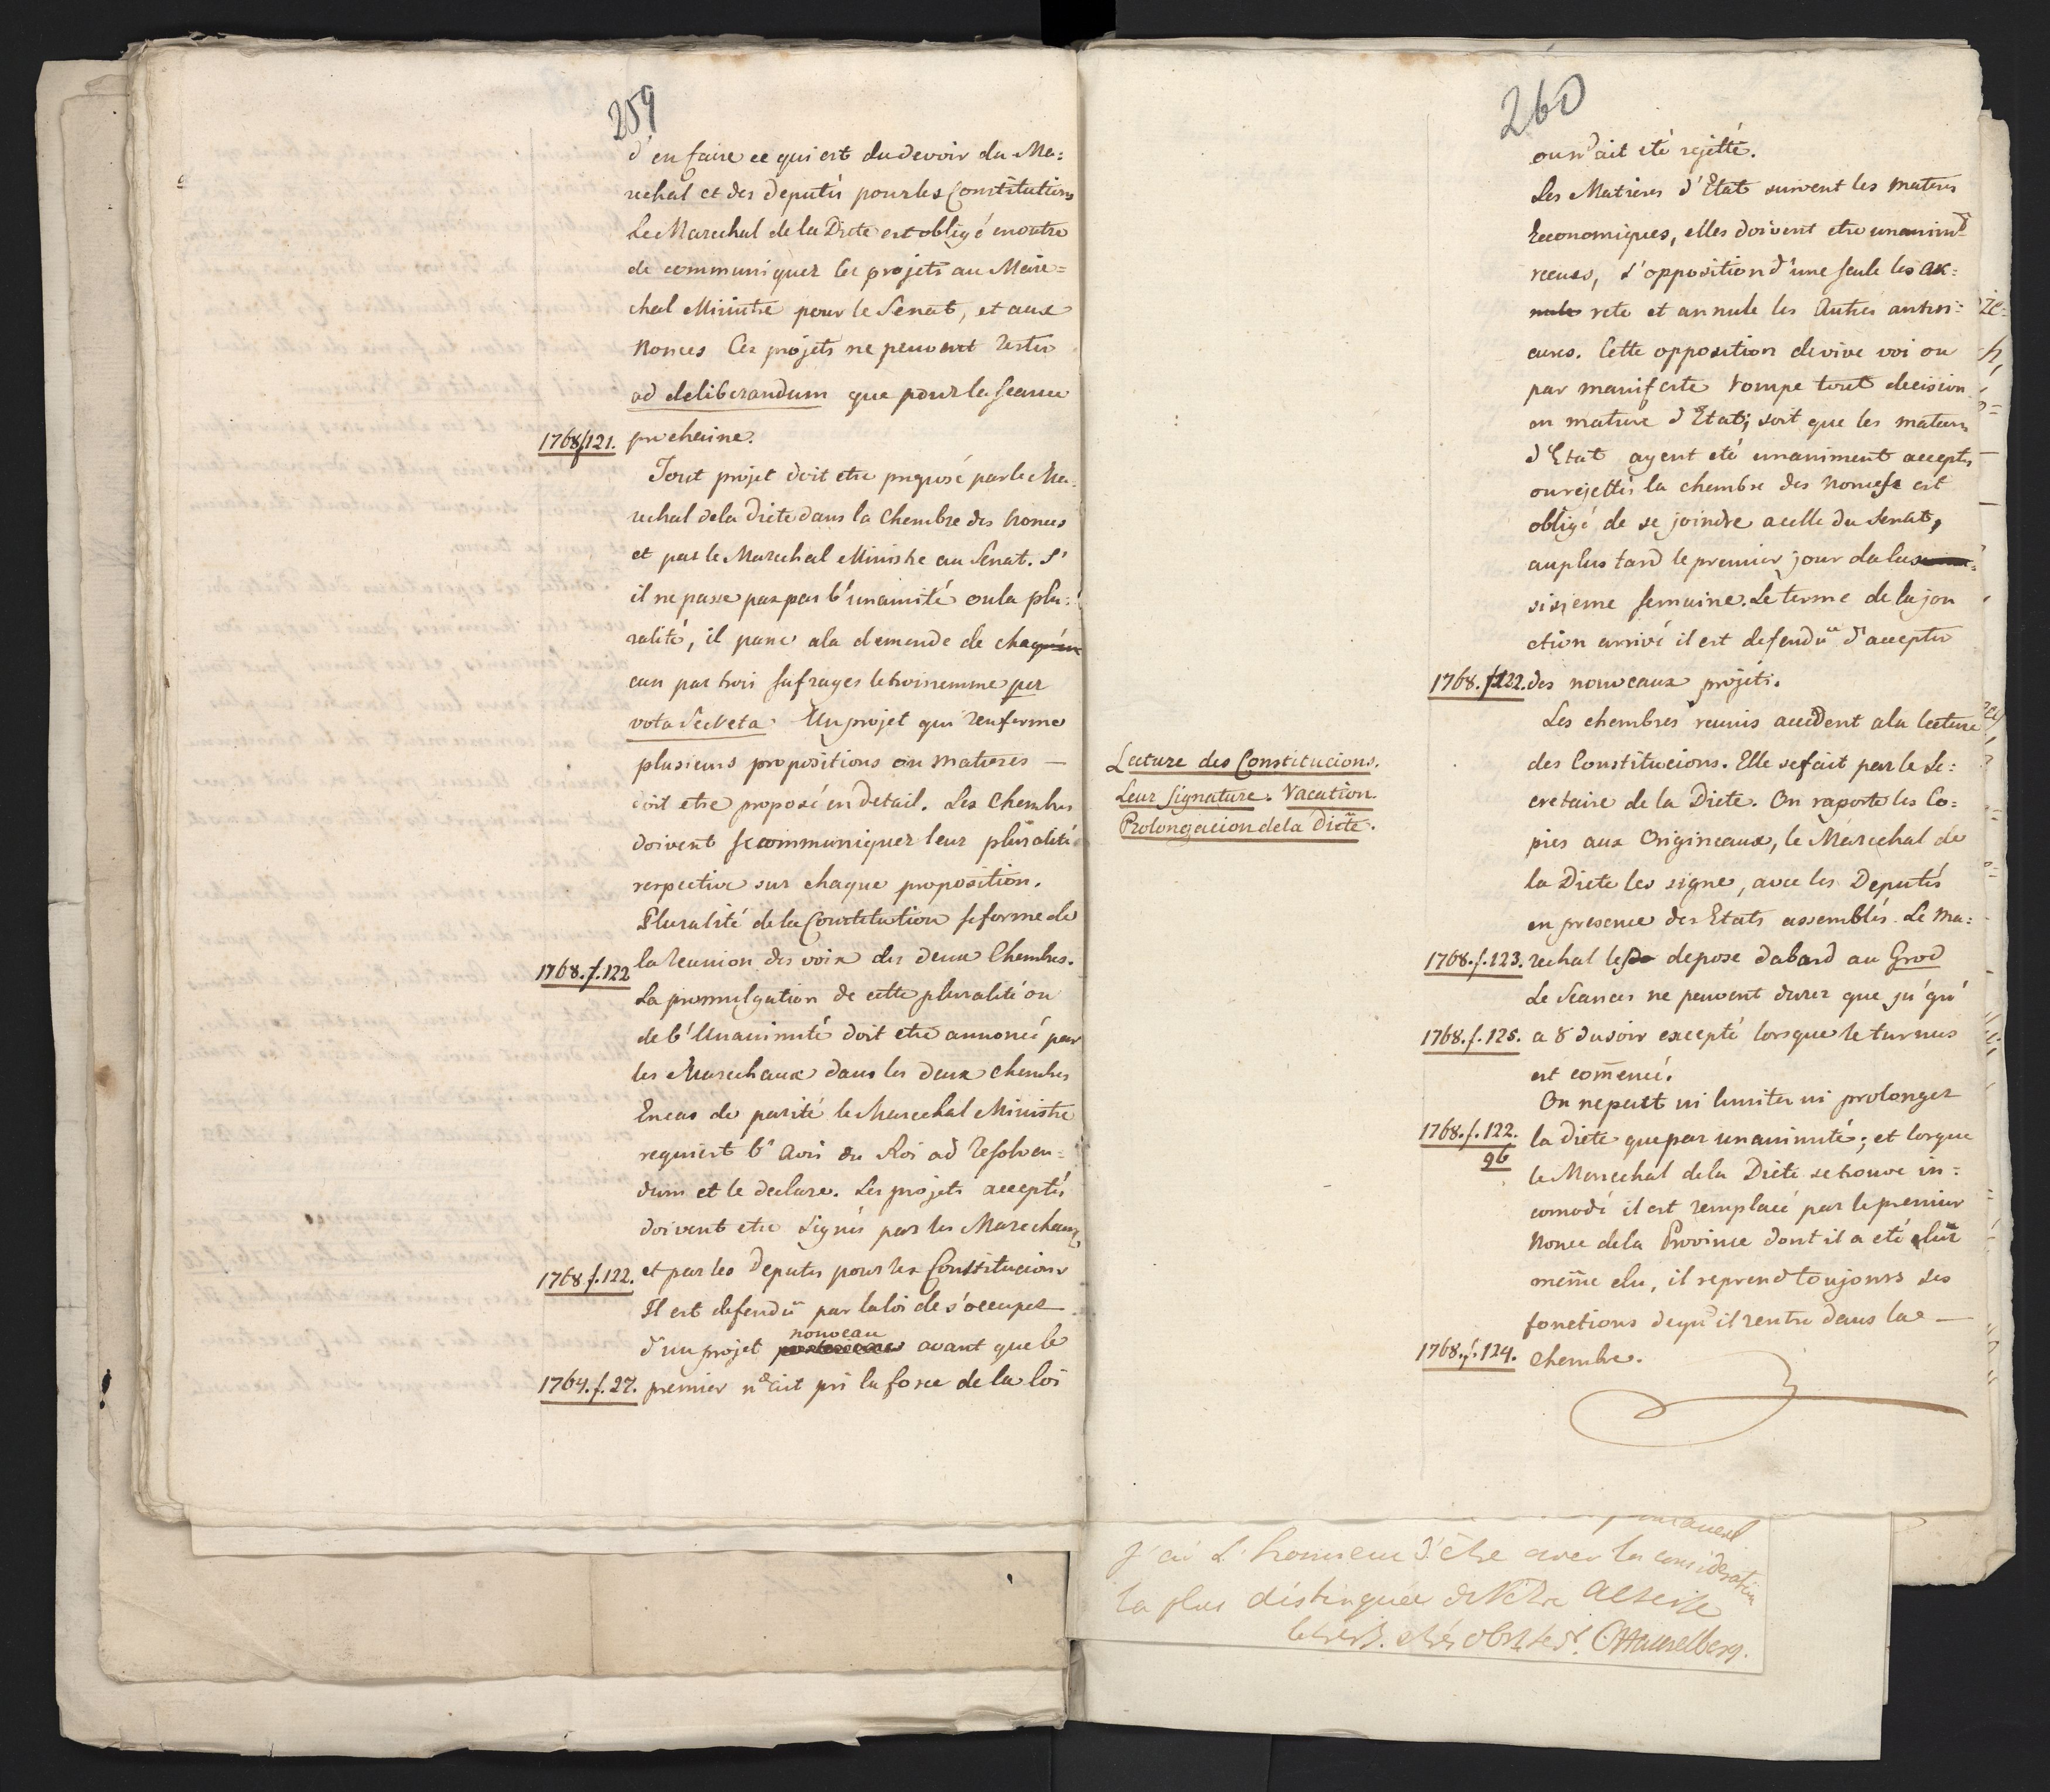 259
d'en faire ce qui est du devoir du Ma:
rechal et des deputés pour les Constitutions
Le Marechal de la Diete est obligé enoutre
de communiquer les projets au Mare=
chal Ministre pour le Senat, et aux
Nonces Ces projets ne peuvent rester
ad deliberandum que pour la seance
1768/121. prochaine.
Tout projet doit etre proposé par le Ma:
rechal de la diete dans la Chembre des Nonces
et par le Marechal Ministre au Senat. S'
il ne passe pas par l'unamité ou la plu:
ralité, il passe a la demende de chaq
cun par trois sufrages le troisiemme per
vota Secreta. Un projet qui renferme
plusieurs propositions ou matieres —
doit etre proposé en detail. Les Chembres
doivent se communiquer leur pluralité
respective sur chaque proposition.
Pluralité de la Constitution se forme de
1768.f.122 la reunion des voix des deux Chembres.
La promulgation de cette pluralité ou
de l'Unanimité doit etre annoncé par
les Marechaux dans les deux chembres
En cas de parité le Marechal Ministre
requiert l'avis du Roi ad resolven=
dum et le declare. Les projets acceptés
doivent etre signés par les Marechaux
1768.f.122. et par les Deputes pour les Constitucions
Il est defendu par la loi de s'occuper
nouveau
d'un projet avant que le
1764.f.27. premier n'ait pri la force de la loi
260
ou n'ait eté rejetté.
Les Matieres d'Etat suivent les materes
Economiques, elles doivent etre unanimt
receues, l'opposition d'une seule les ar:
rete et annule les Autres anteri=
eures. Cette opposition de vive voi ou
par manifeste rompe tout decision
en matiere d'Etat, soit que les materes
d'Etat ayent eté unaniment acceptes
ou rejettés la chembre des Nonces est
obligé de se joindre a celle du Senat,
au plus tard le premier jour de la
sisieme semaine. Le terme de la jon
ction arrivé il est defendu d'accepter
1768.f.122. des nouveaux projéts.
Les chembres reunis accedent a la lecture
Lecture des Constitucions.
Leur signature. Vacation.
Prolongacion de la Diete.
des Constitucions. Elle se fait par le Se:
cretaire de la Diete. On raporte les Co=
pies aux Origineaux, le Marechal de
la Diete les signe, avec les Deputés
en presence des Etats assemblés. Le Ma:
1768.f.123. rechal les depose dabard au Grod
Le Seances ne peuvent durer que ju'qu'
1768.f.125. a 8 du soir excepté lorsque le turnus
est comencé.
On ne peutt ni limiter ni prolonger
1768.f.122. la diete que par unanimité; et lorque
96
le Marechal de la Diete se trouve in=
comodé il est remplacé par le premier
Nonce de la Province dont il a eté
meme elu, il reprend toujours ses
fonctions dequ'il rentre dans la —
1768.f.124. Chembre.
J'ai L'honneur d'être avec la consideration
la plus distinguée de Votre Altesse